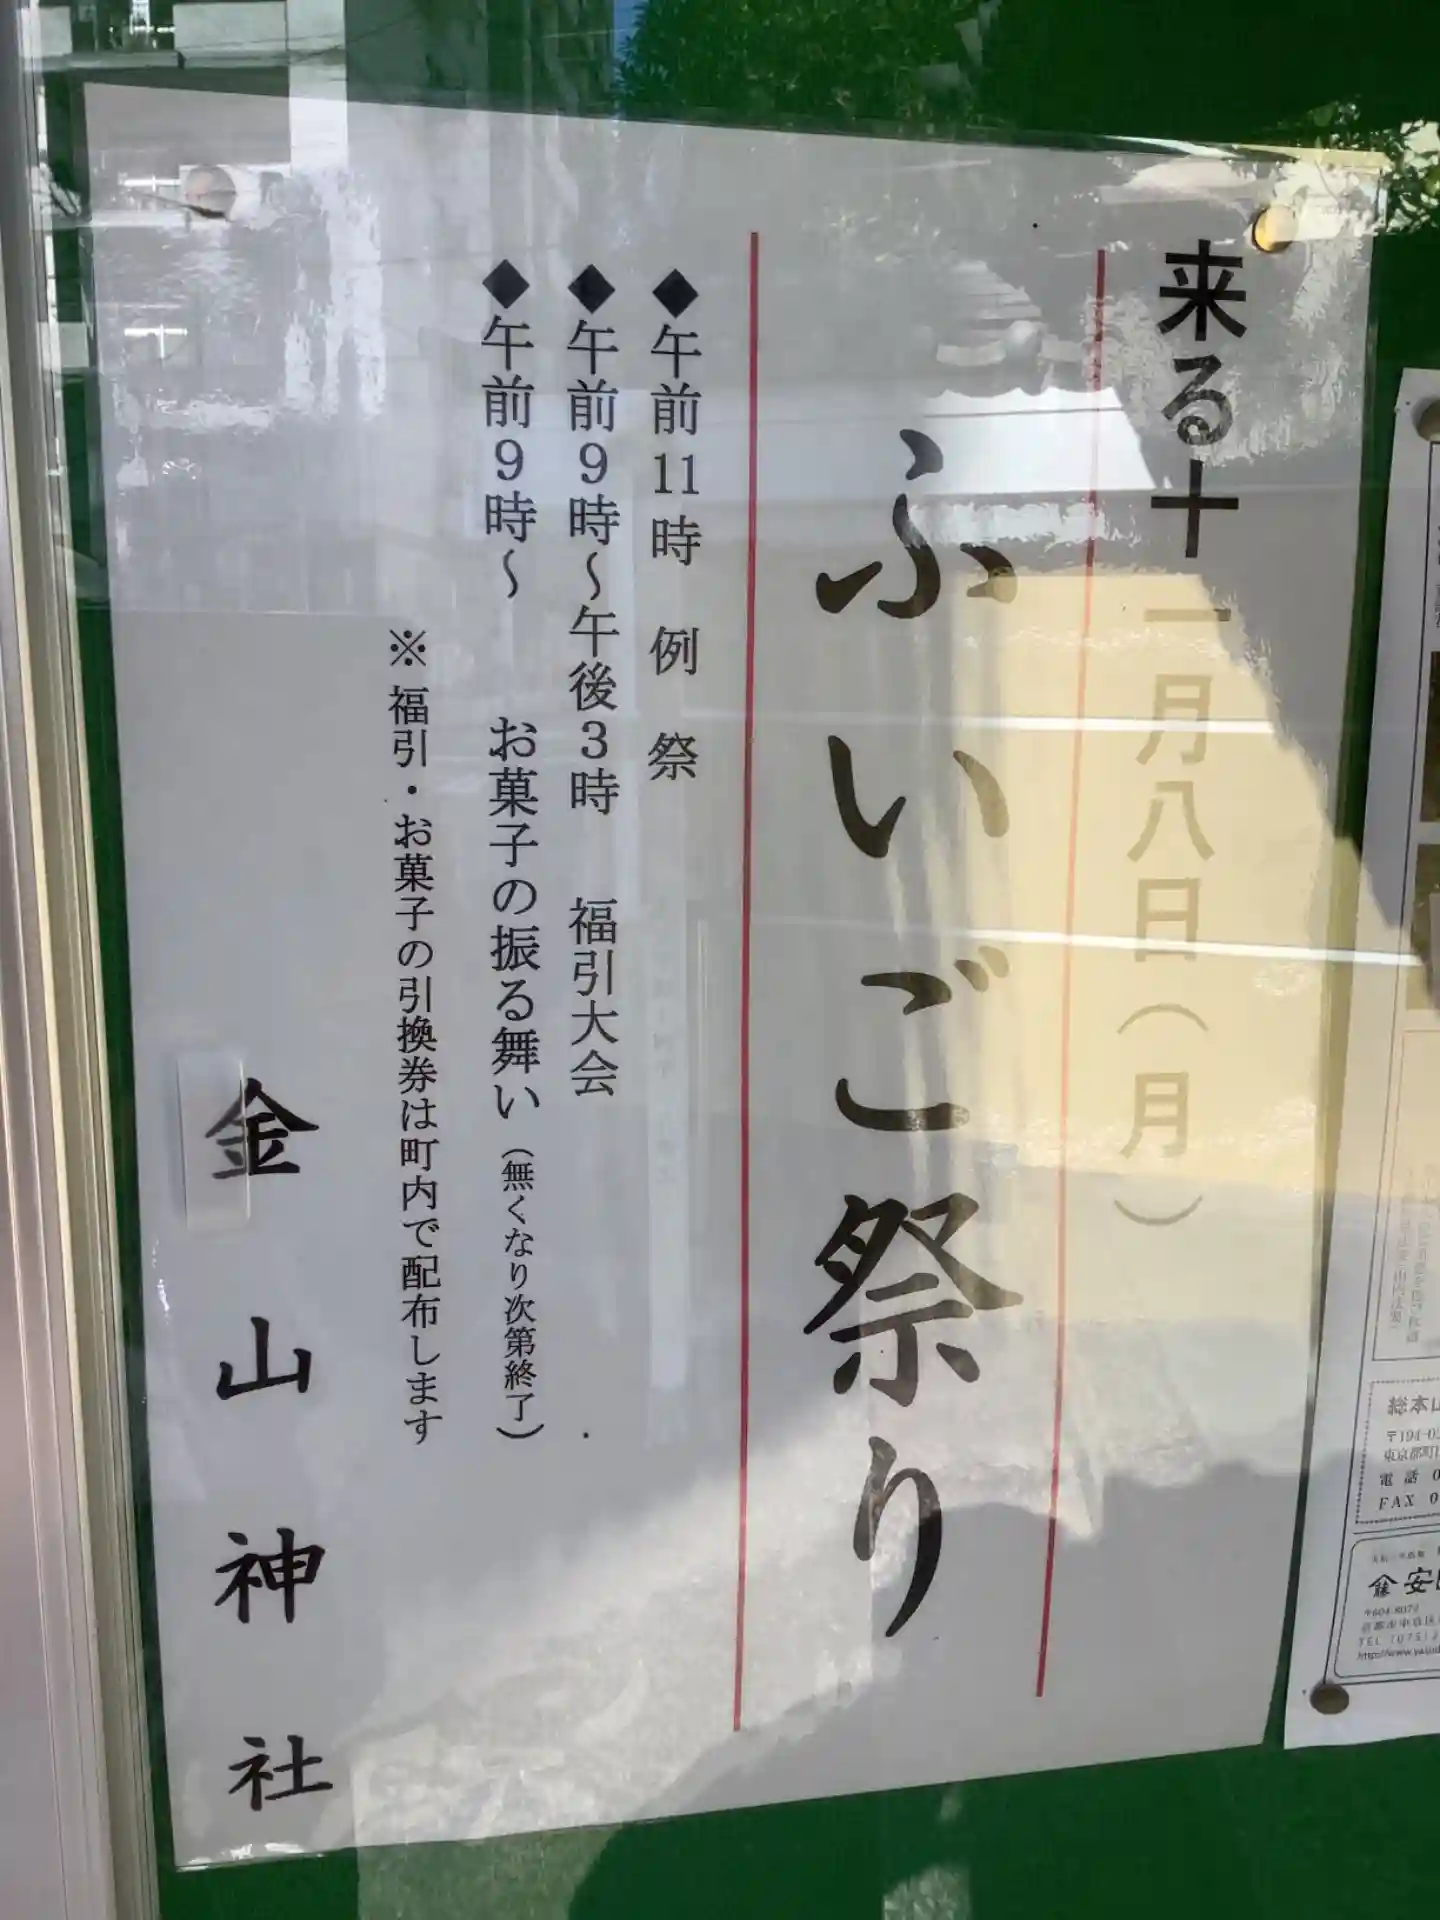 来る十一月八日（月）
ふいご祭り
◆午前11時　例　祭
◆午前９時～午後３時　福引大会
◆午前９時～　お菓子の振る舞い（無くなり次第終了）
※福引・お菓子の引換券は町内で配布します
金山神社
総本山
〒194-0
東京都町
電話 0
FAX 0
〒604-8072
TEL (075)2